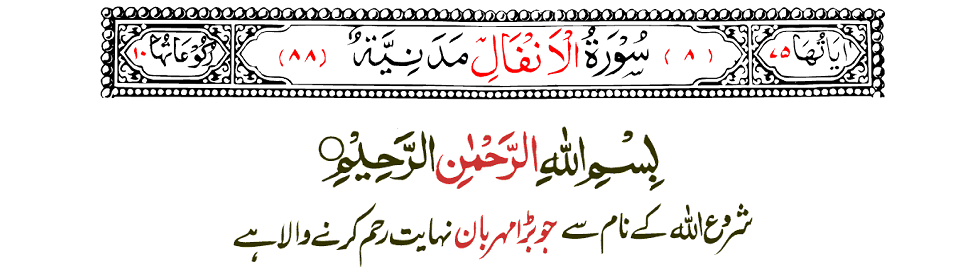 اٰیَاتُهَا ۷۵ (۸) سُوْرَةُ الْاَنْفَالِ مَدَنِیَّةٌ (۸۸) رُكُوْعَاتُهَا ۱۰
بِسْمِ اللّٰهِ الرَّحْمٰنِ الرَّحِیْمِ۝
شروع اللہ کے نام سے جو بڑا مہربان نہایت رحم کرنے والا ہے